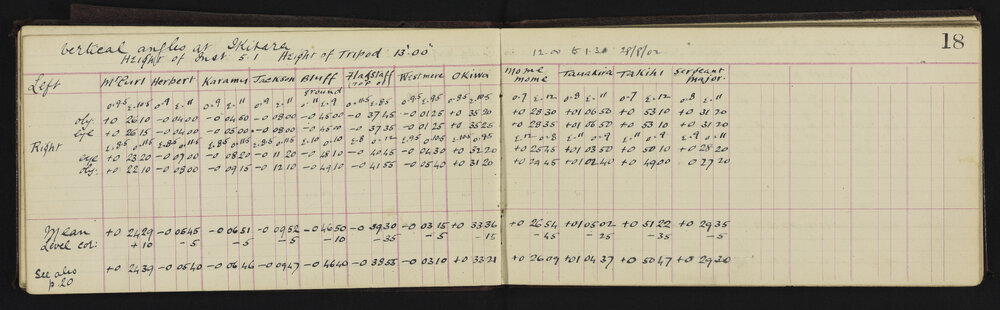 18
Vertical angles at Ikitara
Height of Inst 5.1 Height of Tripod 13'00" 12.00 to 1.30 28/8/02
Left McCurl Herbert Karamu Jackson Bluff ground Flagstaff Westmere Okiwa Mome mome Tauakira Takihi Sergeant major
O.95 E.105 O.9 E.11 O.9 E.11 O.9 E.11 O.11 E.9 O.115 E.85 O.95 E.95 O.95 E.105 O.7 E.12 O.8 E.11 O.7 E.12 O.8 E.11
obj. +0 26 10 -0 04 00 -0 04 50 -0 08 00 -0 45 00 -0 37 45 -0 01 25 +0 35 20 +0 28 30 +01 06 50 +0 53 10 +0 31 20
Eye +0 26 15 -0 04 00 -0 05 00 -0 08 00 -0 45 00 -0 37 35 -0 01 25 +0 35 25 +0 28 35 +01 06 50 +0 53 10 +0 31 20
Right E.85 O.115 E.85 O.115 E.85 O.115 E.85 O.115 E.10 O.10 E.8 O.12 E.95 O.105 E.95 O.105 E.12 O.8 E.11 O.9 E.11 O.9 E.9 O.11
eye +0 23 20 -0 07 00 -0 08 20 -0 11 20 -0 48 10 -0 40 45 -0 04 30 +0 32 20 +0 25 45 +01 03 50 +0 50 10 +0 28 20
obj. +0 22 10 -0 08 00 -0 09 15 -0 12 10 -0 49 10 -0 41 55 -0 05 40 +0 31 20 +0 24 45 +01 02 40 +0 49 00 +0 27 20
Mean +0 24 29 -0 05 45 -0 06 51 -0 09 52 -0 46 50 -0 39 30 -0 03 15 +0 33 36 +0 26 54 +01 05 02 +0 51 22 +0 29 35
Level cor: +10 -5 -5 -5 -10 -35 -5 -15 -45 -25 -35 -5
See also +0 24 39 -0 05 40 -0 06 46 -0 09 47 -0 46 40 -0 38 55 -0 03 10 +0 33 21 +0 26 09 +01 04 37 +0 50 47 +0 29 30
p. 20